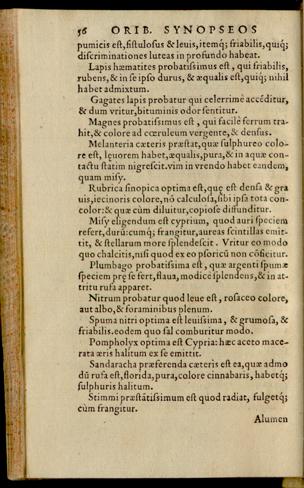 56 ORIB. SYNOPSEOS
pumicis est, fistulosus & leuis, itemq́; friabilis, quiq́;
discriminationes luteas in profundo habeat.
Lapis hæmatites probatissimus est, qui friabilis,
rubens, & in se ipso durus, & æqualis est, quiq́; nihil
habet admixtum.
Gagates lapis probatur qui celerrimè accēditur,
& dum vritur, bituminis odor sentitur.
Magnes probatissimus est, qui facilè ferrum tra-
hit, & colore ad cœruleum vergente, & densus.
Melanteria cæteris præstat, quæ sulphureo colo-
re est, leuorem habet, æqualis, pura, & in aquæ con-
tactu statim nigrescit. vim in vrendo habet eandem,
quam misy.
Rubrica sinopica optima est, quę est densa & gra
uis, iecinoris colore, nō calculosa, sibi ipsa tota con-
color: & quæ cùm diluitur, copiosè diffunditur.
Misy eligendum est cyprium, quod auri speciem
refert, durū: cumq́; frangitur, aureas scintillas emit-
tit, & stellarum more splendescit. Vritur eo modo
quo chalcitis, nisi quod ex eo psoricū non cōficitur.
Plumbago probatissima est, quæ argenti spumæ
speciem præ se fert, flaua, modicè splendens, & in at-
tritu rufa apparet.
Nitrum probatur quod leue est, rosaceo colore,
aut albo, & foraminibus plenum.
Spuma nitri optima est leuissima, & grumosa, &
friabilis. eodem quo sal comburitur modo.
Pompholyx optima est Cypria: hæc aceto mace-
rata æris halitum ex se emittit.
Sandaracha præferenda cæteris est ea, quæ admo
dū rufa est, florida, pura, colore cinnabaris, habetq́;
sulphuris halitum.
Stimmi præstātissimum est quod radiat, fulgetq́;
cùm frangitur.
Alumen